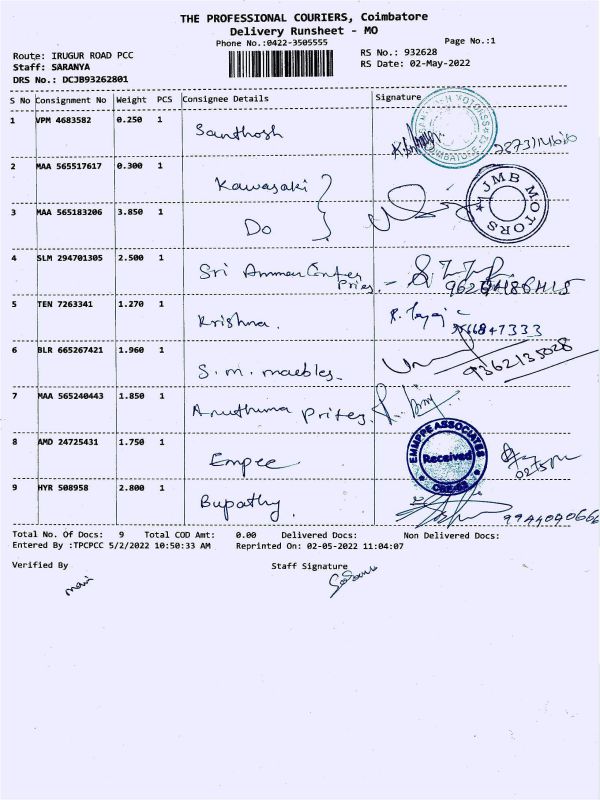 THE PROFESSIONAL COURIERS, Coimbatore
Delivery Runsheet - MO
Phone No.:0422-3505555 Page No.:1
Route: IRUGUR ROAD PCC RS No.: 932628
Staff: SARANYA RS Date: 02-May-2022
DRS No.: DCJB93262801
S No Consignment No Weight PCS Consignee Details Signature
1 VPM 4683582 0.250 1 Santhosh
2 MAA 565517617 0.300 1 Kawasaki
JMB MOTORS
3 MAA 565183206 3.850 1 Do
4 SLM 294701305 2.500 1 Sri Amman
5 TEN 7263341 1.270 1 Krishna.
6 BLR 665267421 1.960 1 S.m. maebles. 9362135028
7 MAA 565240443 1.850 1
8 AMD 24725431 1.750 1 Empee
EMMPPE ASSOCIATES
Received
9 HYR 508958 2.800 1 Bupathy.
Total No. Of Docs: 9 Total COD Amt: 0.00 Delivered Docs: Non Delivered Docs:
Entered By :TPCPCC 5/2/2022 10:50:33 AM Reprinted On: 02-05-2022 11:04:07
Verified By Staff Signature